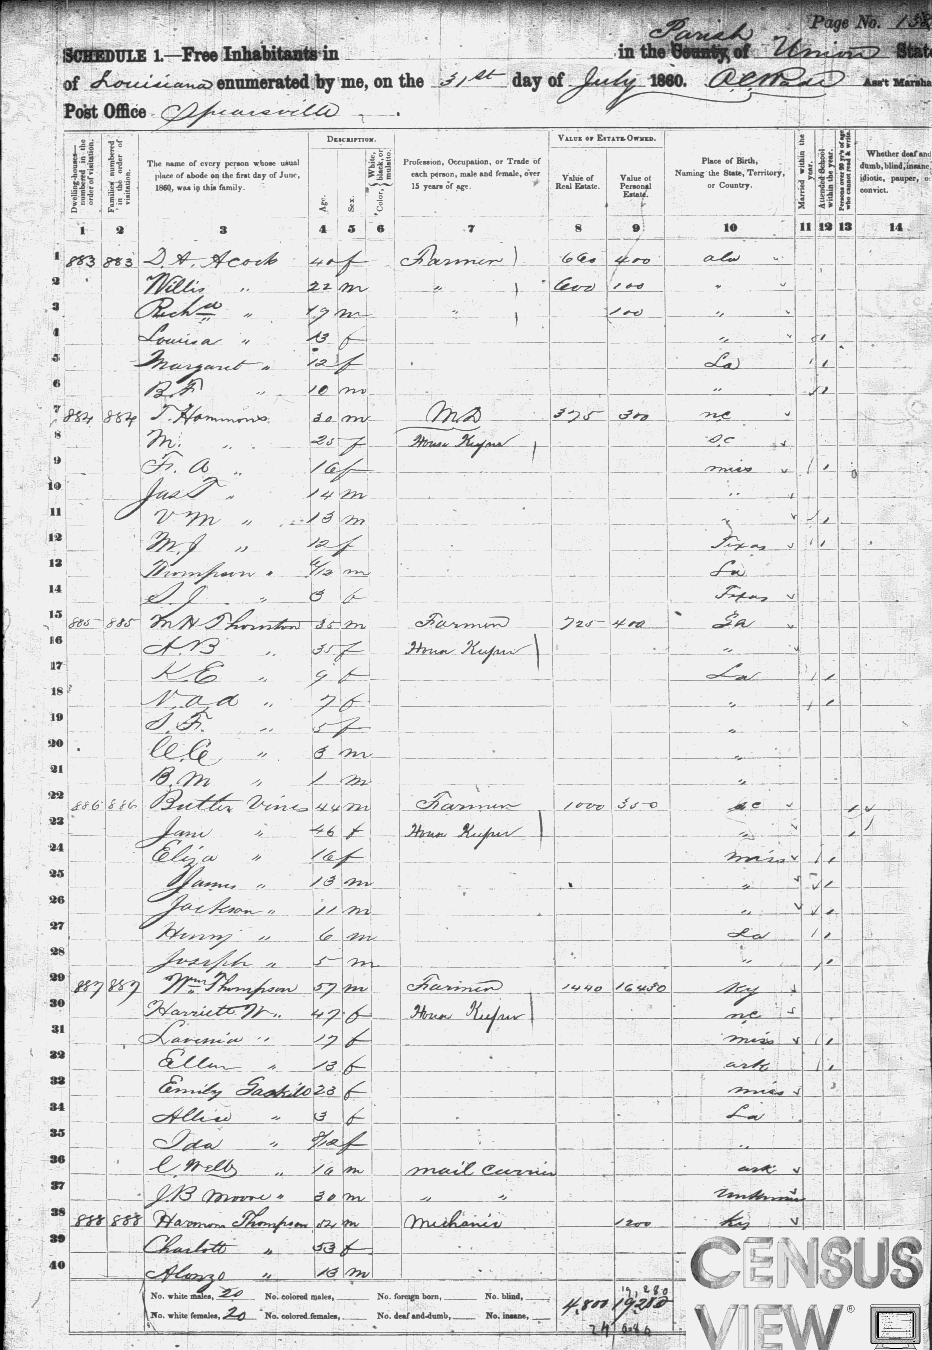 Page No. 138
SCHEDULE 1.—Free Inhabitants in in the County of Parish Union State
of Louisiana enumerated by me, on the 31st day of July 1860. Ass't Marsha
Post Office Spearsville
Dwelling-houses—numbered in the order of visitation.
Families numbered in the order of visitation.
The name of every person whose usual place of abode on the first day of June, 1860, was in this family.
DESCRIPTION.
Age.
Sex.
Color, White, black, or mulatto.
Profession, Occupation, or Trade of each person, male and female, over 15 years of age.
VALUE OF ESTATE OWNED.
Value of Real Estate.
Value of Personal Estate.
Place of Birth, Naming the State, Territory, or Country.
Married within the year.
Attended School within the year.
Persons over 20 y'rs of age who cannot read & write.
Whether deaf and dumb, blind, insane, idiotic, pauper, or convict.
1 2 3 4 5 6 7 8 9 10 11 12 13 14
1 883 883 D. A. Acock 40 f Farmer 660 400 ala
2 Willis " 22 m " 600 100 "
3 Richd " 19 m " 100 "
4 Louisa " 13 f " 1
5 Margaret " 12 f La 1
6 B. F. " 10 m " 1
7 884 884 T. Hammons 30 m M.D 375 300 nc
8 M. " 25 f House Keeper sc
9 F. A " 16 f miss 1
10 Jas T " 14 m "
11 V M " 13 m " 1
12 M. J " 12 f Texas 1
13 Thompson " /12 m La
14 S. J. " 3 f Texas
15 885 885 M H Thornton 35 m Farmer 725 400 Ga
16 A. B " 35 f House Keeper "
17 K. E " 9 f La 1
18 N. a. d " 7 f " 1
19 S. F. " 5 f "
20 C. C " 3 m "
21 B. M " 1 m "
22 886 886 Butler Vines 44 m Farmer 1000 350 sc 1
23 Jane " 46 f House Keeper " 1
24 Eliza " 16 f miss 1
25 James " 13 m " 1
26 Jackson " 11 m " 1
27 Henry " 6 m La 1
28 Joseph " 5 m " 1
29 887 887 Wm Thompson 57 m Farmer 1440 16480 Ky
30 Harriett W. " 47 f House Keeper nc
31 Lavenia " 17 f miss 1
32 Ellen " 13 f ark 1
33 Emily Gaskill 23 f miss
34 Allice " 3 f La
35 Ida " /12 f "
36 C. Webb " 10 m mail carrier ark
37 J. B Moore " 30 m " " Unknown
38 888 888 Harmon Thompson 54 m Mechanic 1200 Ky
39 Charlott " 53 f
40 Alonzo " 13 m
No. white males, 20 No. colored males, No. foreign born, No. blind, 4,800 19280
No. white females, 20 No. colored females, No. deaf and dumb, No. insane, 24 080
CENSUS
VIEW®